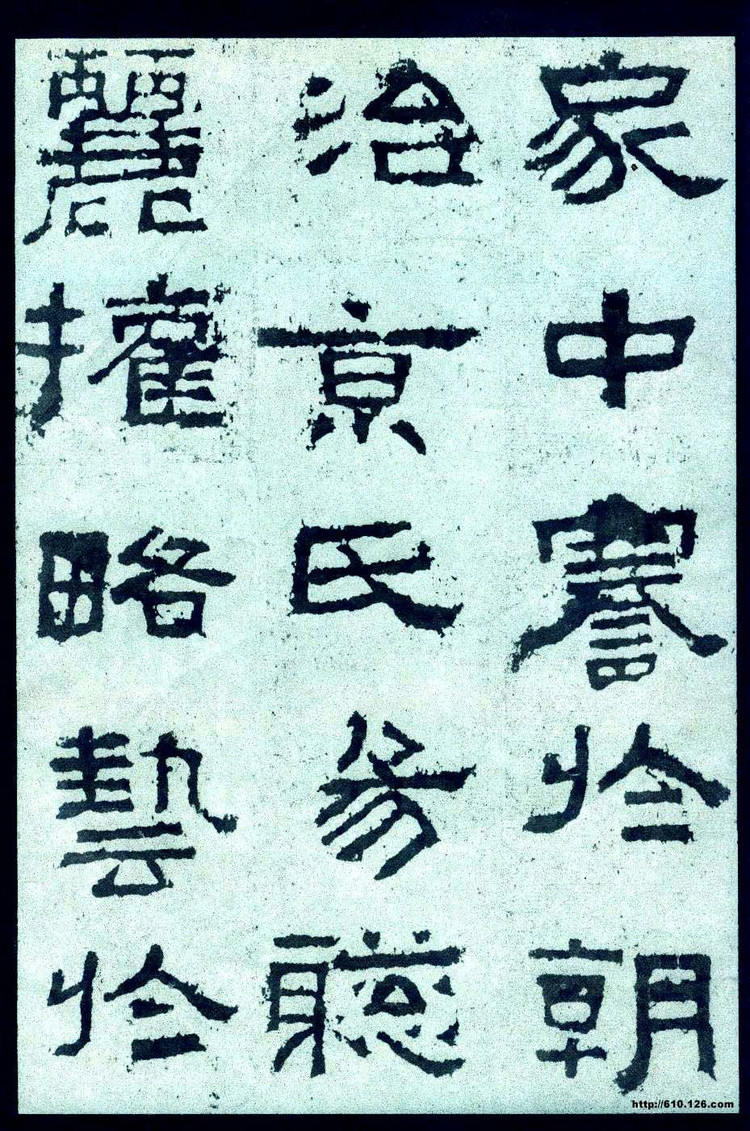 家中謇於朝
治京氏易聰
麗權略藝於
http://610.126.com